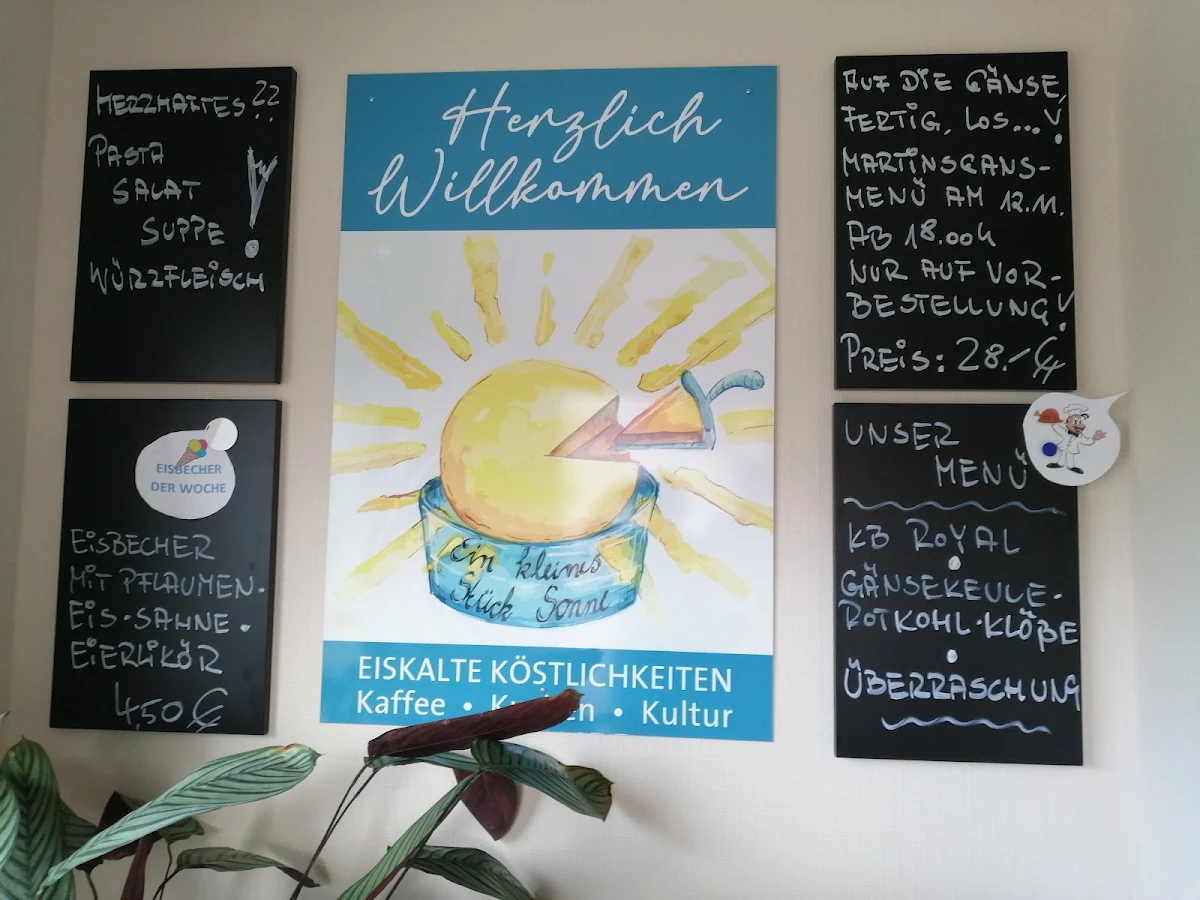 HERZHAFTES??
PASTA
SALAT
SUPPE
WÜRZFLEISCH
!
EISBECHER
DER WOCHE
EISBECHER
MIT PFLAUMEN-
EIS·SAHNE·
EIERLIKÖR
4,50 €
Herzlich
Willkommen
Ein kleines
Stück Sonne
EISKALTE KÖSTLICHKEITEN
Kaffee • • Kultur
AUF DIE GÄNSE,
FERTIG, LOS...!
MARTINSGANS-
MENÜ AM 12.11.
AB 18.00h
NUR AUF VOR-
BESTELLUNG!
PREIS: 28.-€
UNSER
MENÜ
KB ROYAL
GÄNSEKEULE·
ROTKOHL·KLÖßE
ÜBERRASCHUNG